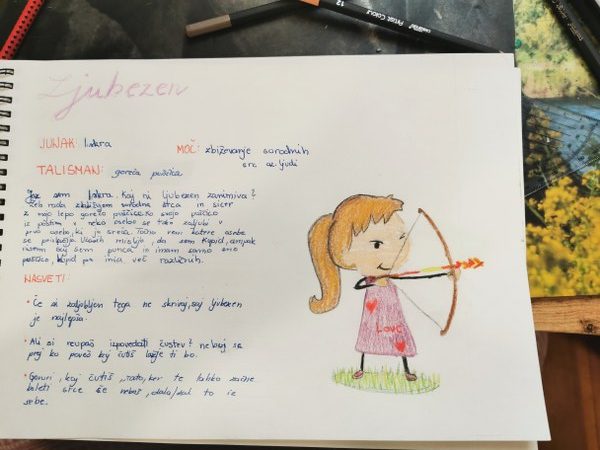 Ljubezen
JUNAK: Iskra
MOČ: zbiževanje sorodnih
src oz. ljudi
TALISMAN: goreča puščica
Jaz sem Iskra. Kaj ni ljubezen zanimiva?
Zelo rada zbližujem sorodna srca in sicer
z mojo lepo gorečo puščico. Ko svojo puščico
iz pustim v nebo osebo se tako zaljubi v
prvo osebo, ki jo sreča. Točno vem katere osebe
se privlačijo. Ljudje mislijo, da sem Kupid, ampak
nisem saj sem punca in imam samo eno
puščico, Kupid pa ima več različnih.
NASVETI:
• Če si zaljubljen tega ne skrivaj, saj ljubezen
je najlepša.
• Ali si neupaš izpovedati čustev? nekaj se
prej ko poveš kaj čutiš lažje ti bo.
• Govori, kaj čutiš, zato, ker te lahko začne
boleti srce če neboš, dala/dal to iz
sebe.
Love
12